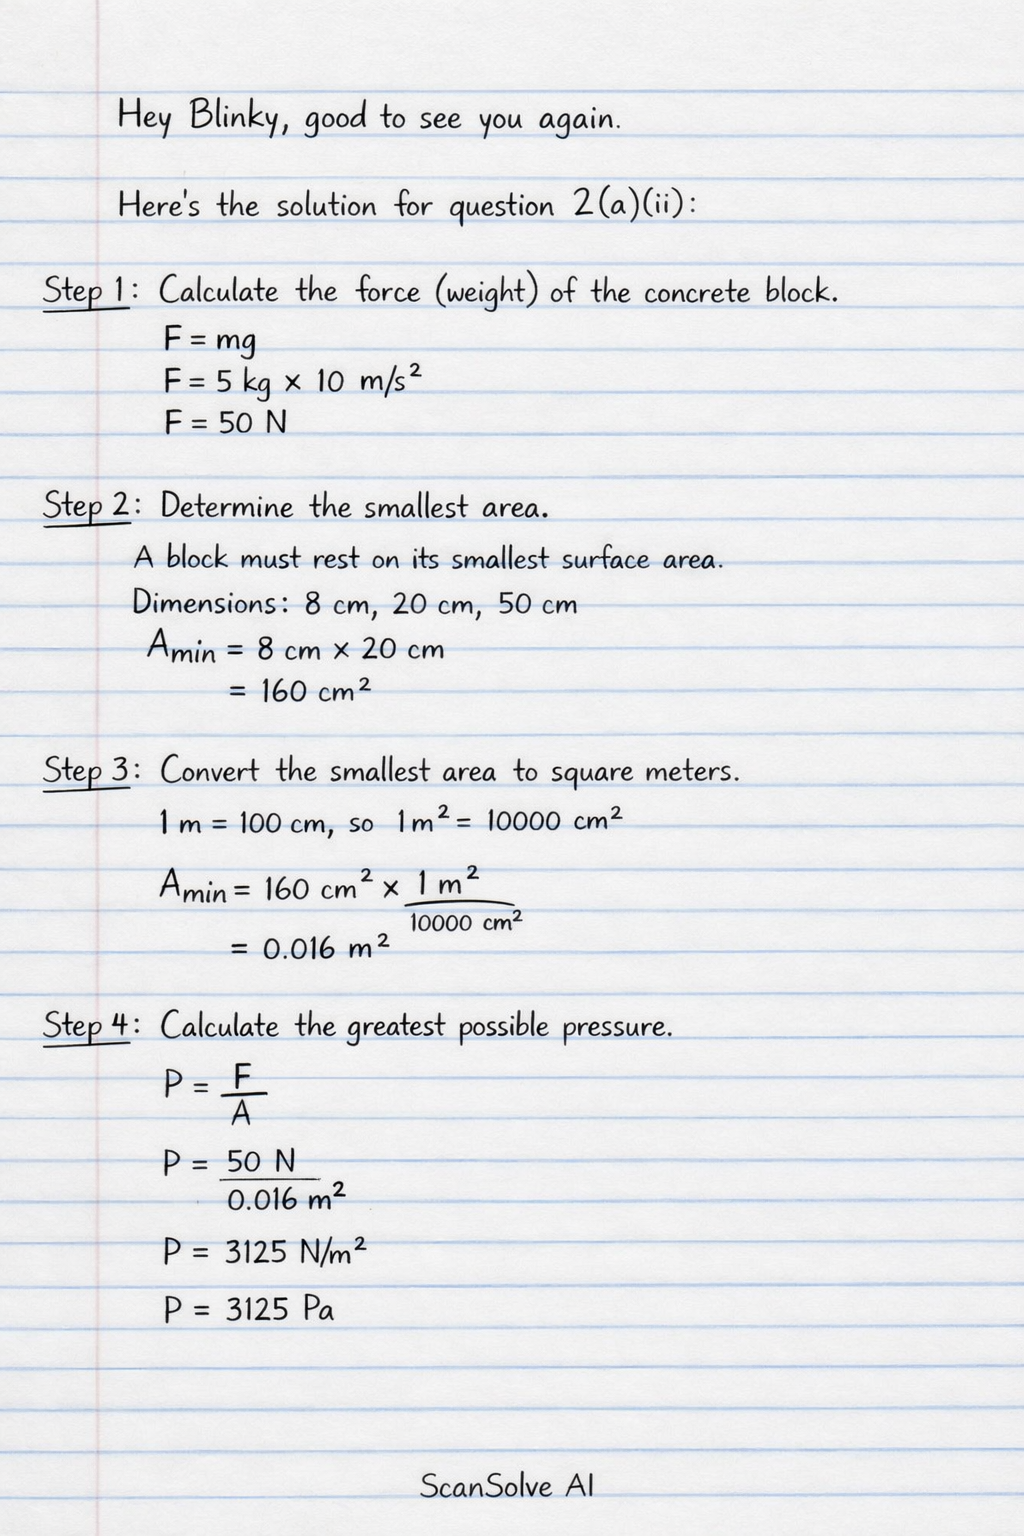 Hey Blinky, good to see you again.
Here's the solution for question 2(a)(ii):
Step 1: Calculate the force (weight) of the concrete block.
F = mg
F = 5 kg × 10 m/s²
F = 50 N
Step 2: Determine the smallest area.
A block must rest on its smallest surface area.
Dimensions: 8 cm, 20 cm, 50 cm
Amin = 8 cm × 20 cm
= 160 cm²
Step 3: Convert the smallest area to square meters.
1 m = 100 cm, so 1m² = 10000 cm²
Amin = 160 cm² × 1 m²
10000 cm²
= 0.016 m²
Step 4: Calculate the greatest possible pressure.
P = F
A
P = 50 N
0.016 m²
P = 3125 N/m²
P = 3125 Pa
ScanSolve AI